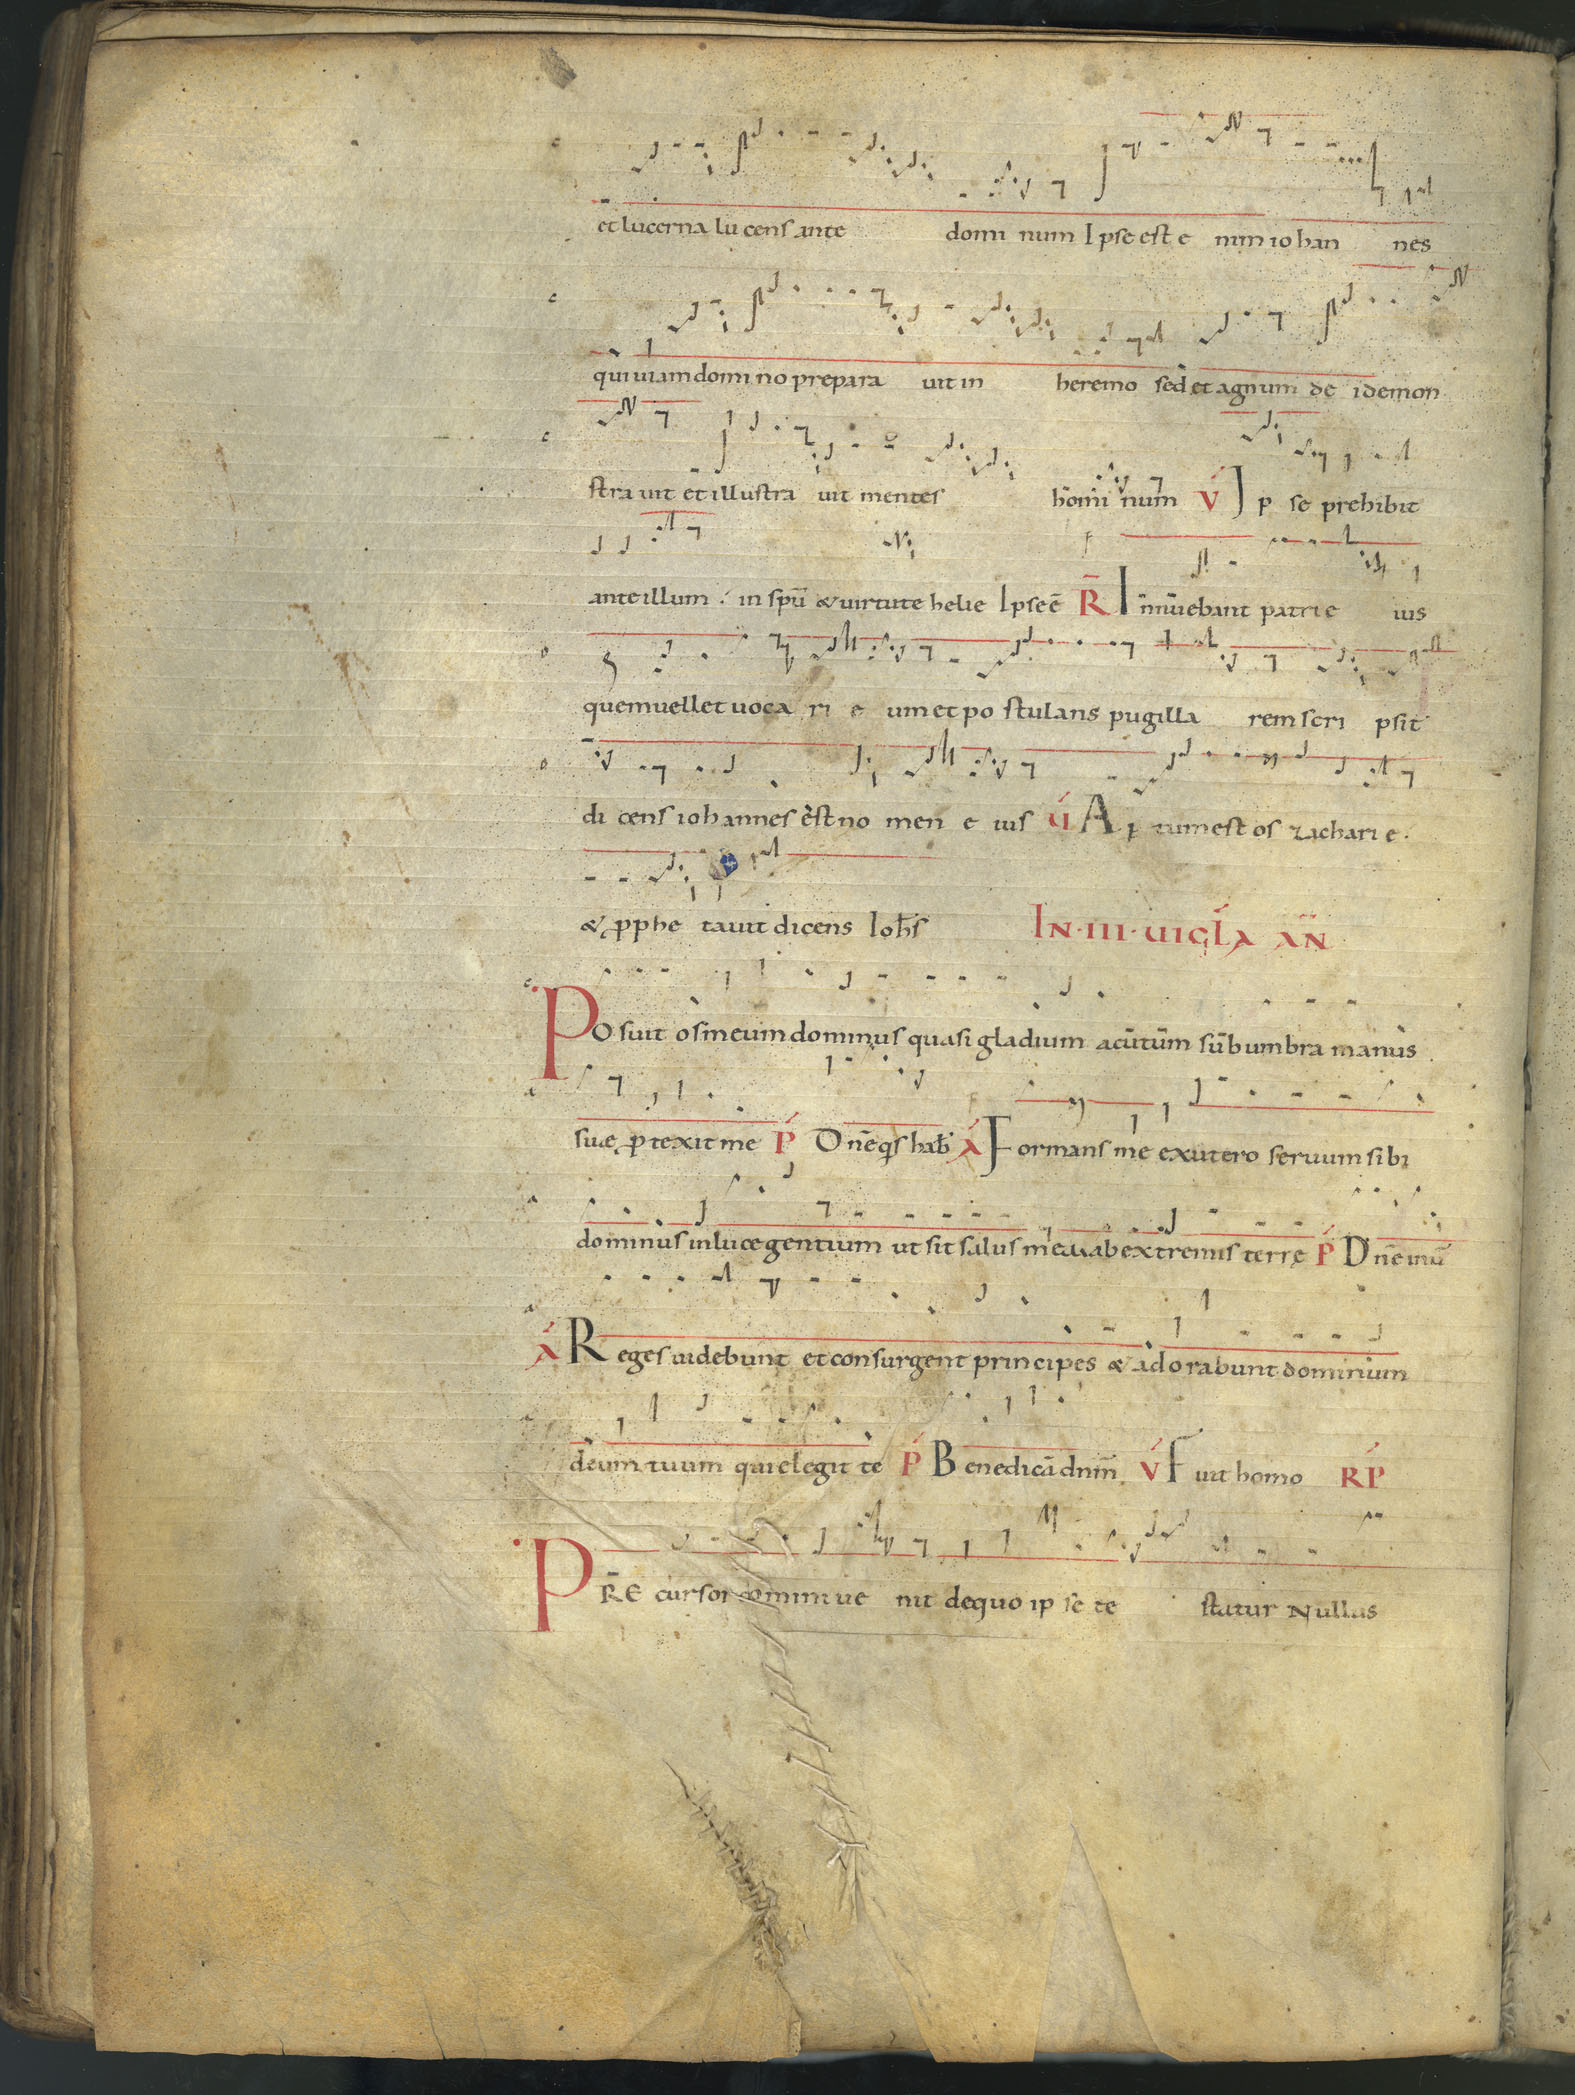 et lucerna lucens ante dominum Ipse est enim iohannes
qui uiam domino preparauit in heremo sed et agnum dei demon
strauit et illustrauit mentes hominum V Ipse prehibit
ante illum in spū & uirtute helie Ipse ē R Innuebant patri eius
quem uellet uocari eum et postulans pugillarem scripsit
dicens iohannes est nomen eius V Apertum est os zacharie
& pphetauit dicens Iohs IN III UIGLA AN
Posuit os meum dominus quasi gladium acutum sub umbra manus
suę ptexit me P Dne qs hab A Formans me ex utero seruum sibi
dominus in luce gentium ut sit salus mea ab extremis terrę P Dne inu
A Reges uidebunt et consurgent principes & adorabunt dominum
deum tuum qui elegit te P Benedicā dnm V Fuit homo RP
PRE cursor domini uenit de quo ipse testatur Nullus